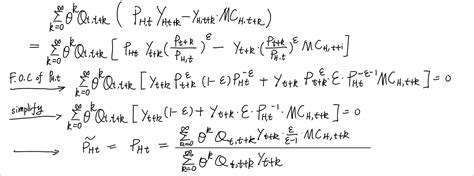 ∑_{k=0}^{∞} θ^k Q_{t,t+k} ( P_{Ht} Y_{H,t+k} − Y_{H,t+k} · MC_{H,t+k} )
= ∑_{k=0}^{∞} θ^k Q_{t,t+k} [ P_{Ht} Y_{t+k} (P_{t+k}/P_{H,t})^ε − Y_{t+k} (P_{t+k}/P_{H,t})^ε MC_{H,t+i} ]
F.O.C of P_{H,t} → ∑_{k=0}^{∞} θ^k Q_{t,t+k} [ Y_{t+k} P_{t+k}^ε (1-ε) P_{Ht}^{-ε} + Y_{t+k} P_{t+k}^ε · ε · P_{H,t}^{-ε-1} MC_{H,t+k} ] = 0
simplify → ∑_{k=0}^{∞} θ^k Q_{t,t+k} [ Y_{t+k} (1-ε) + Y_{t+k} · ε · P_{H,t}^{-1} · MC_{H,t+k} ] = 0
→ P̃_{Ht} = P_{Ht} = ∑_{k=0}^{∞} θ^k Q_{t,t+k} Y_{t+k} · ε/(ε-1) · MC_{H,t+k} / ∑_{k=0}^{∞} θ^k Q_{t,t+k} Y_{t+k}